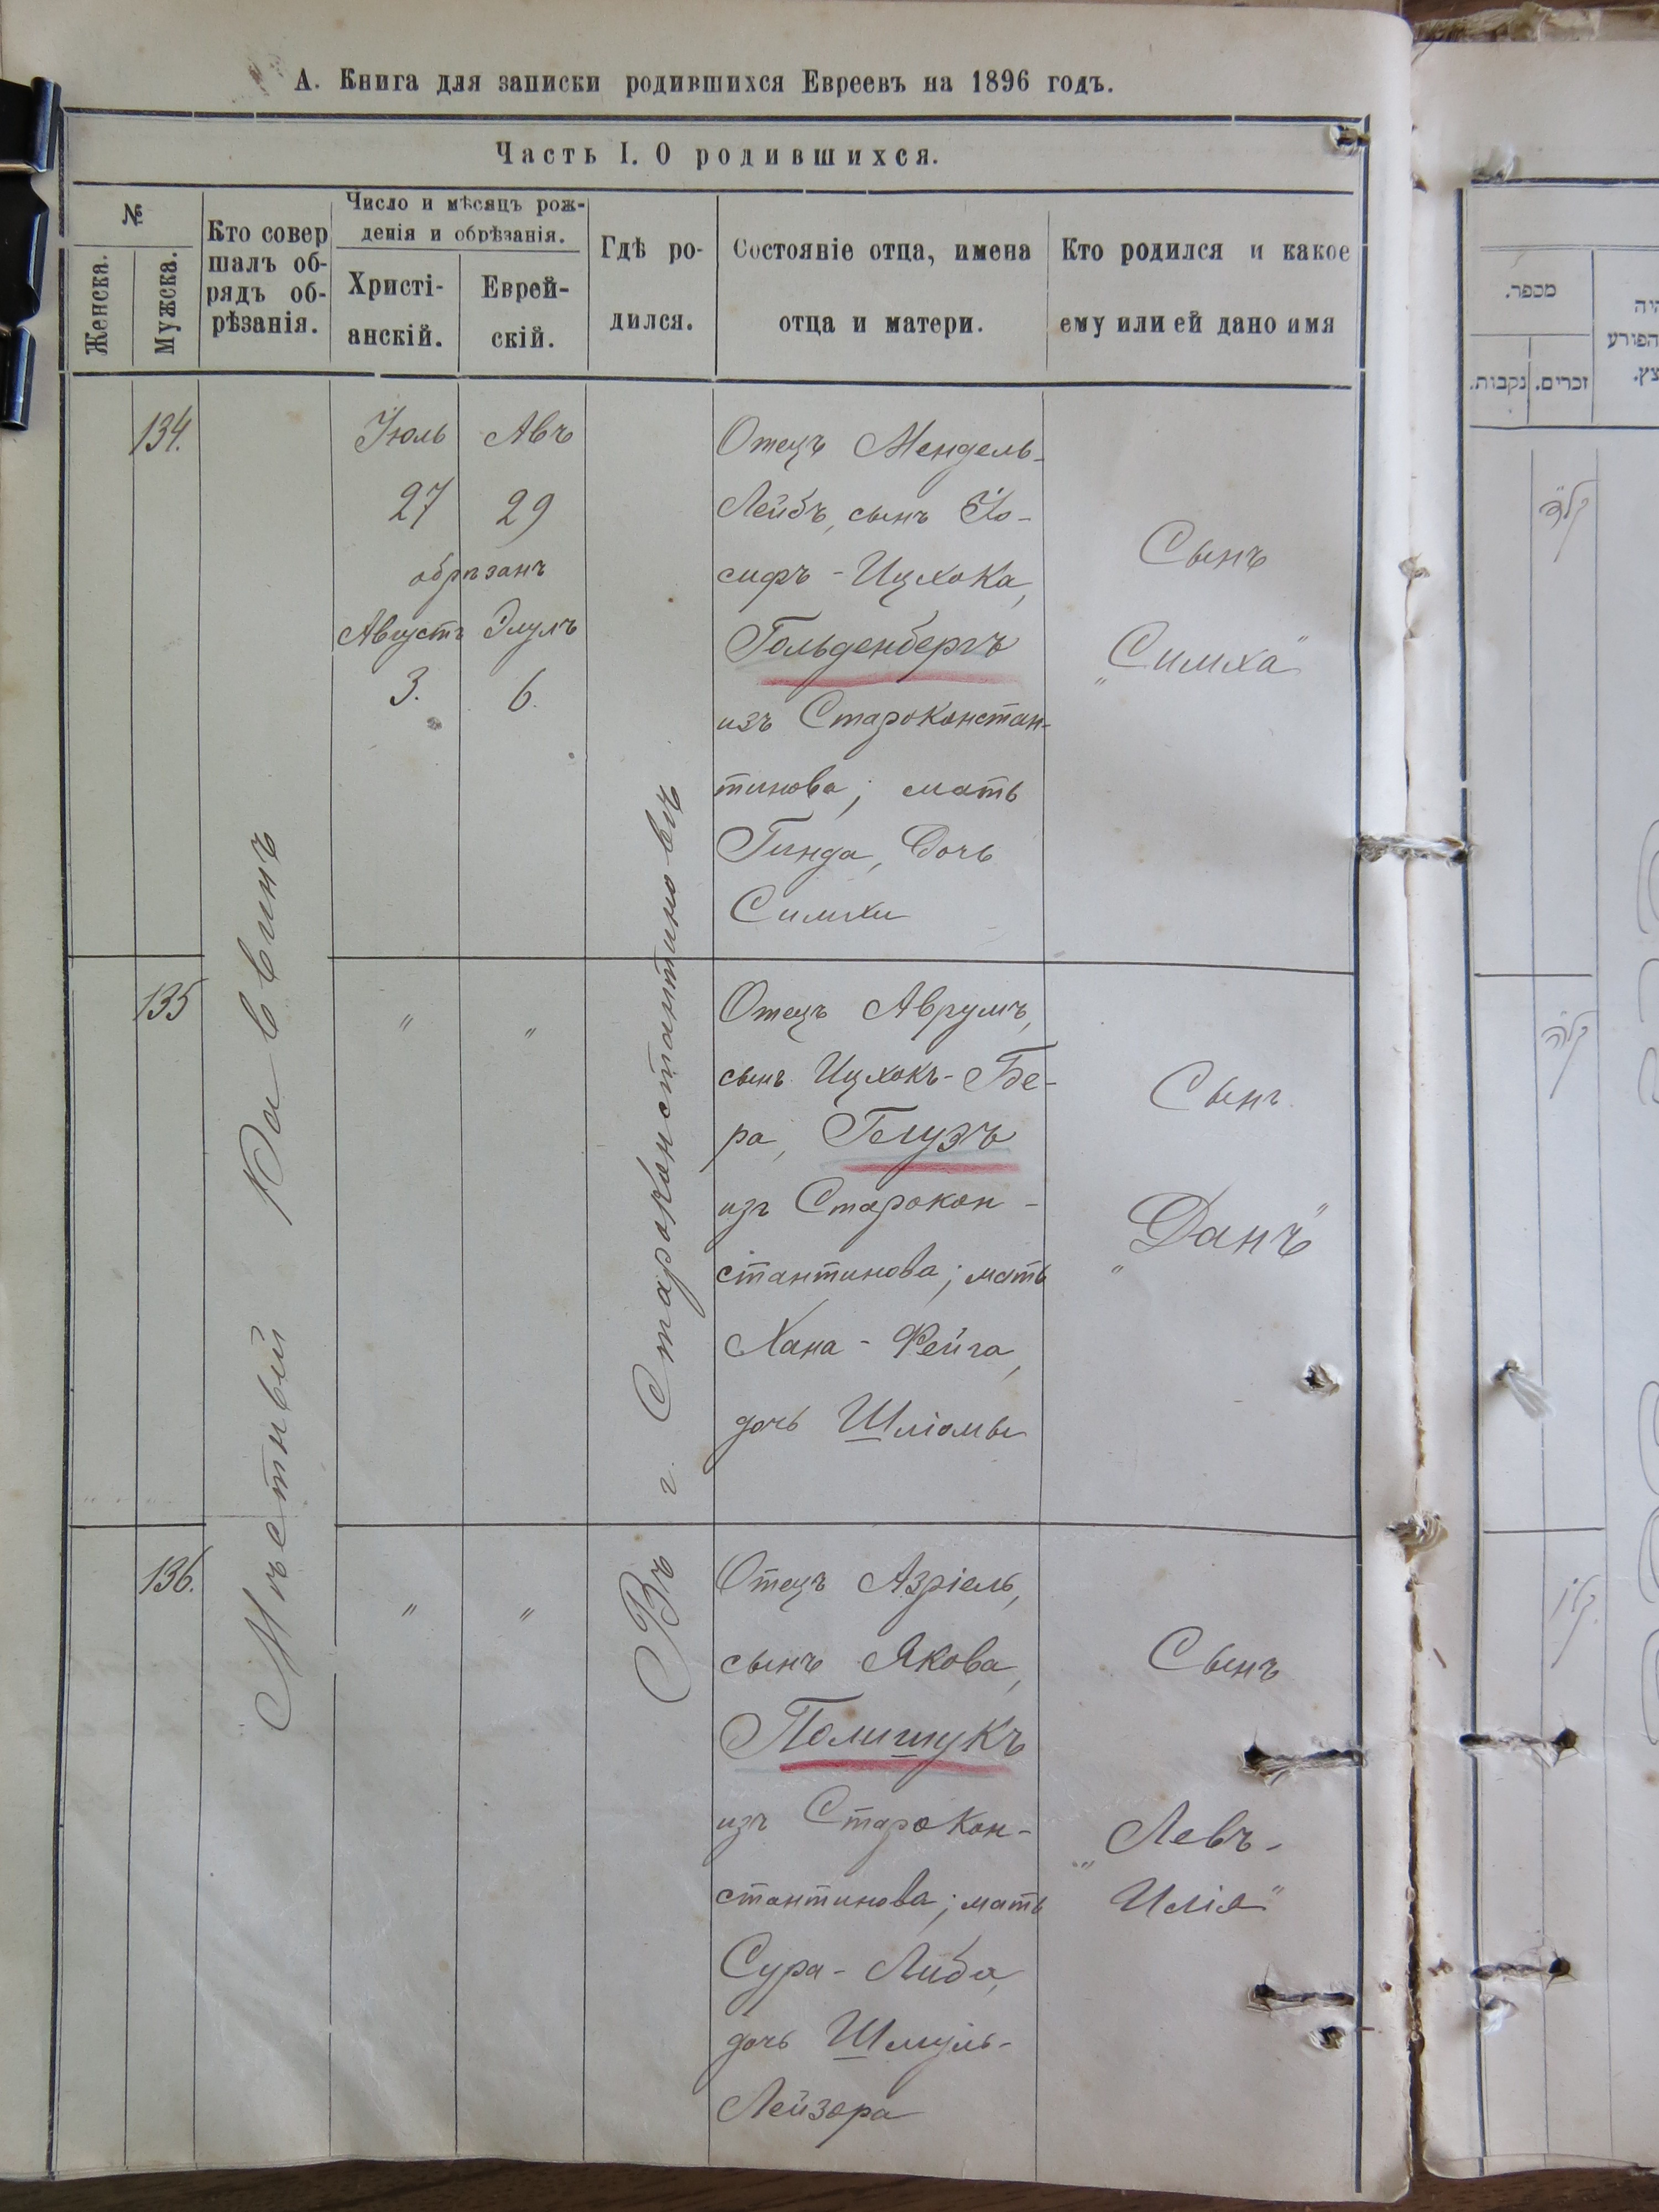 А. Книга для записки родившихся Евреевъ на 1896 годъ.
Часть I. О родившихся.
№
Женска.
Мужска.
Кто совер
шалъ об-
рядъ об-
рѣзанія.
Число и мѣсяцъ рож-
денія и обрѣзанія.
Христі-
анскій.
Еврей-
скій.
Гдѣ ро-
дился.
Состояніе отца, имена
отца и матери.
Кто родился и какое
ему или ей дано имя
Мѣстный Раввинъ
Въ г. Староконстантиновѣ
134.
Іюль Авъ
27 29
обрѣзанъ
Августъ Элулъ
3. 6.
Отецъ Мендель-
Лейбъ, сынъ Іо-
сифъ-Ицхока,
Гольденбергъ
изъ Староконстан-
тинова; мать
Гинда, дочь
Симхи
Сынъ
„Симха"
135
" "
Отецъ Аврумъ,
сынъ Ицхокъ-Бе-
ра, Гелузъ
изъ Старокон-
стантинова; мать
Хана-Фейга,
дочь Шліомы
Сынъ
„Данъ"
136.
" "
Отецъ Азріель,
сынъ Якова,
Полишукъ
изъ Старокон-
стантинова; мать
Сура-Либа,
дочь Шмуль-
Лейзора
Сынъ
„Левъ-
Илія"
מכפר.
זכרים.
נקבות.
היה
הפורע
קל״ד
קל״ה
קל״ו